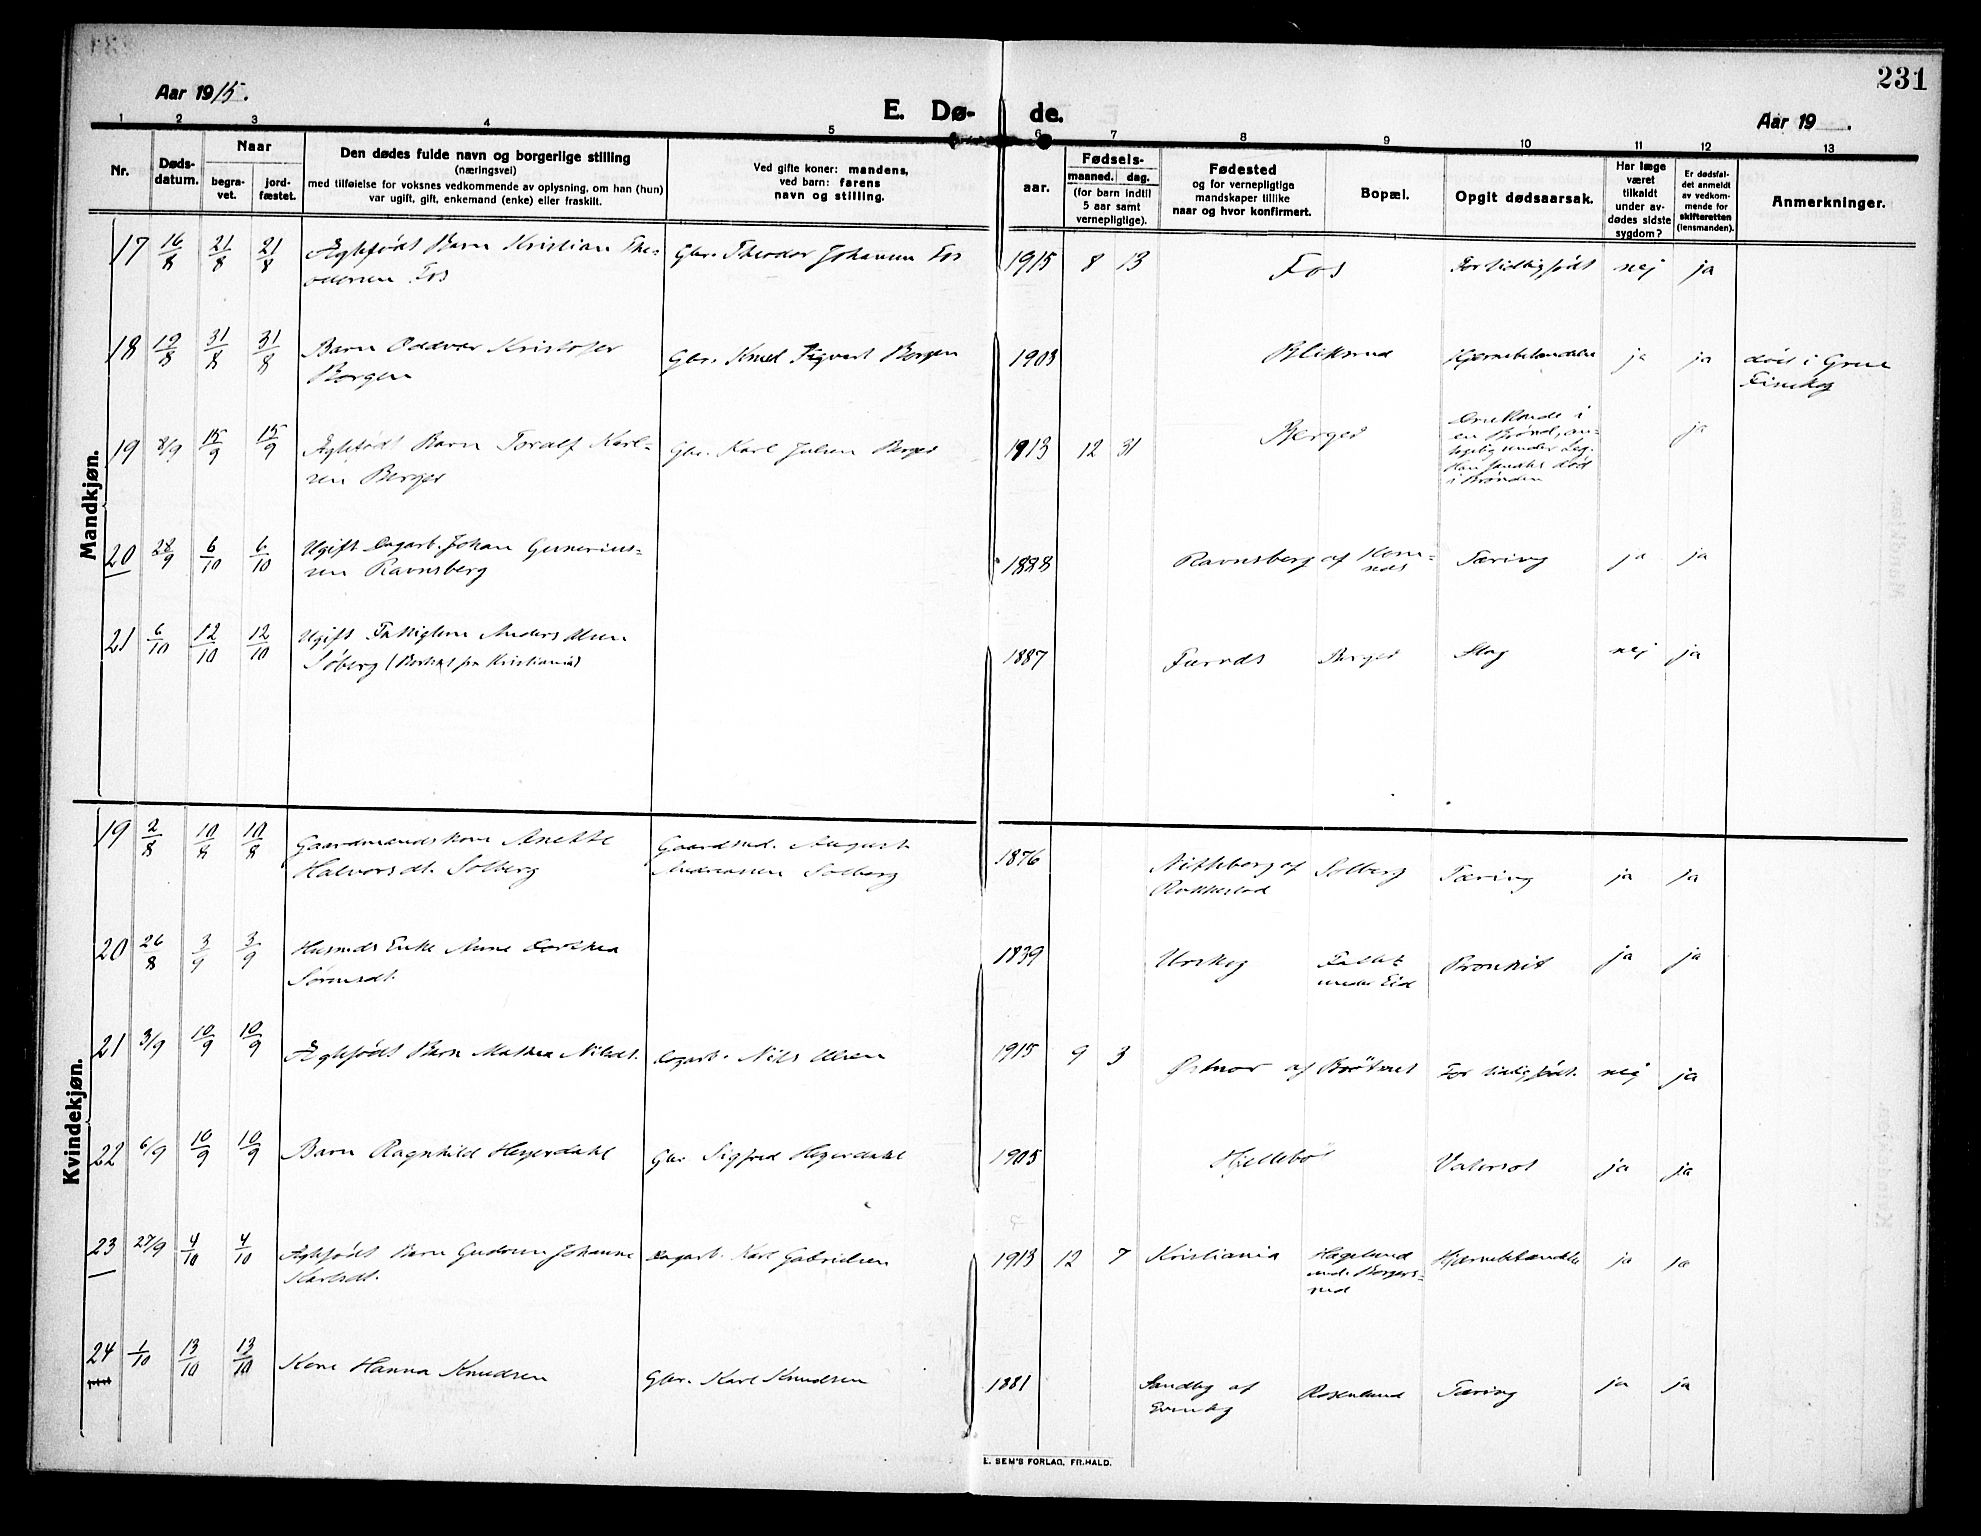 231
Aar 1915.
E. Dø- de.
Aar 19 .
1 2 3 4 5 6 7 8 9 10 11 12 13
Nr.
Døds-
datum.
Naar
begra-
vet.
jord-
fæstet.
Den dødes fulde navn og borgerlige stilling
(næringsvei)
med tilføielse for voksnes vedkommende av oplysning, om han (hun)
var ugift, gift, enkemand (enke) eller fraskilt.
Ved gifte koner: mandens,
ved barn: farens
navn og stilling.
Fødsels-
aar.
maaned. dag.
(for barn indtil
5 aar samt
vernepligtige).
Fødested
og for vernepligtige
mandskaper tillike
naar og hvor konfirmert.
Bopæl.
Opgit dødsaarsak.
Har læge
været
tilkaldt
under av-
dødes sidste
sygdom?
Er dødsfal-
det anmeldt
av vedkom-
mende for
skifteretten
(lensmanden).
Anmerkninger.
Mandkjøn.
17 16/8 21/8 21/8 Ægtefødt Barn Kristian The- Gbr. Theodor Johansen Fos 1915 8 13 Fos For tidlig født nej ja
Fos
18 19/8 31/8 31/8 Barn Oddvar Kristofer Gbr. Knut Sigvart Borgen 1903 Bliksrud Hjernebetændelse ja ja død i Grue
Borgen Finskog
19 8/9 15/9 15/9 Ægtefødt Barn Toralf Karl- Gbr. Karl Julsen Berger 1913 12 31 Berger Druknede i ja
sen Berger en Brønd, an-
tagelig under Leg.
Han fandtes død
i Brønden
20 28/9 6/10 6/10 Ugift Dagarb. Johan Gunerius- 1888 Ravnsberg af Høm- Tæring ja ja
sen Ravnsberg
21 6/10 12/10 12/10 Ugift Fattiglem Anders Olsen 1887 Berger Slag nej ja
Søberg (Bortsat fra Kristiania)
Kvindekjøn.
19 2/8 10/8 10/8 Gaardmandskone Anette Gaardmd. August 1876 af Solberg Tæring ja ja
Halvorsdt. Solberg Andreassen Solberg Rakkestad
20 26/8 3/9 3/9 Husmds Enke Anne Dorthea 1839 Urskog Bronkit ja ja
Sørensdt. under Eid
21 3/9 10/9 10/9 Ægtefødt Barn Mathea Nilsdt. Dagarb. Nils Olsen 1915 9 3 af For tidlig født. nej ja
22 6/9 10/9 10/9 Barn Ragnhild Heyerdahl Gbr. Sigfred Heyerdahl 1905 Hjellebøl Vatersot ja ja
23 27/9 4/10 4/10 Ægtefødt Barn Gudrun Johanne Dagarb. Karl Gabrielsen 1913 12 7 Kristiania Hageland Hjernebetændelse ja ja
Karlsdt. und. Borgers-
rud
24 1/10 13/10 13/10 Kone Hanna Knudsen Gbr. Karl Knudsen 1881 Sandby af Rosenlund Tæring ja ja
E. SEM'S FORLAG, FR.HALD.